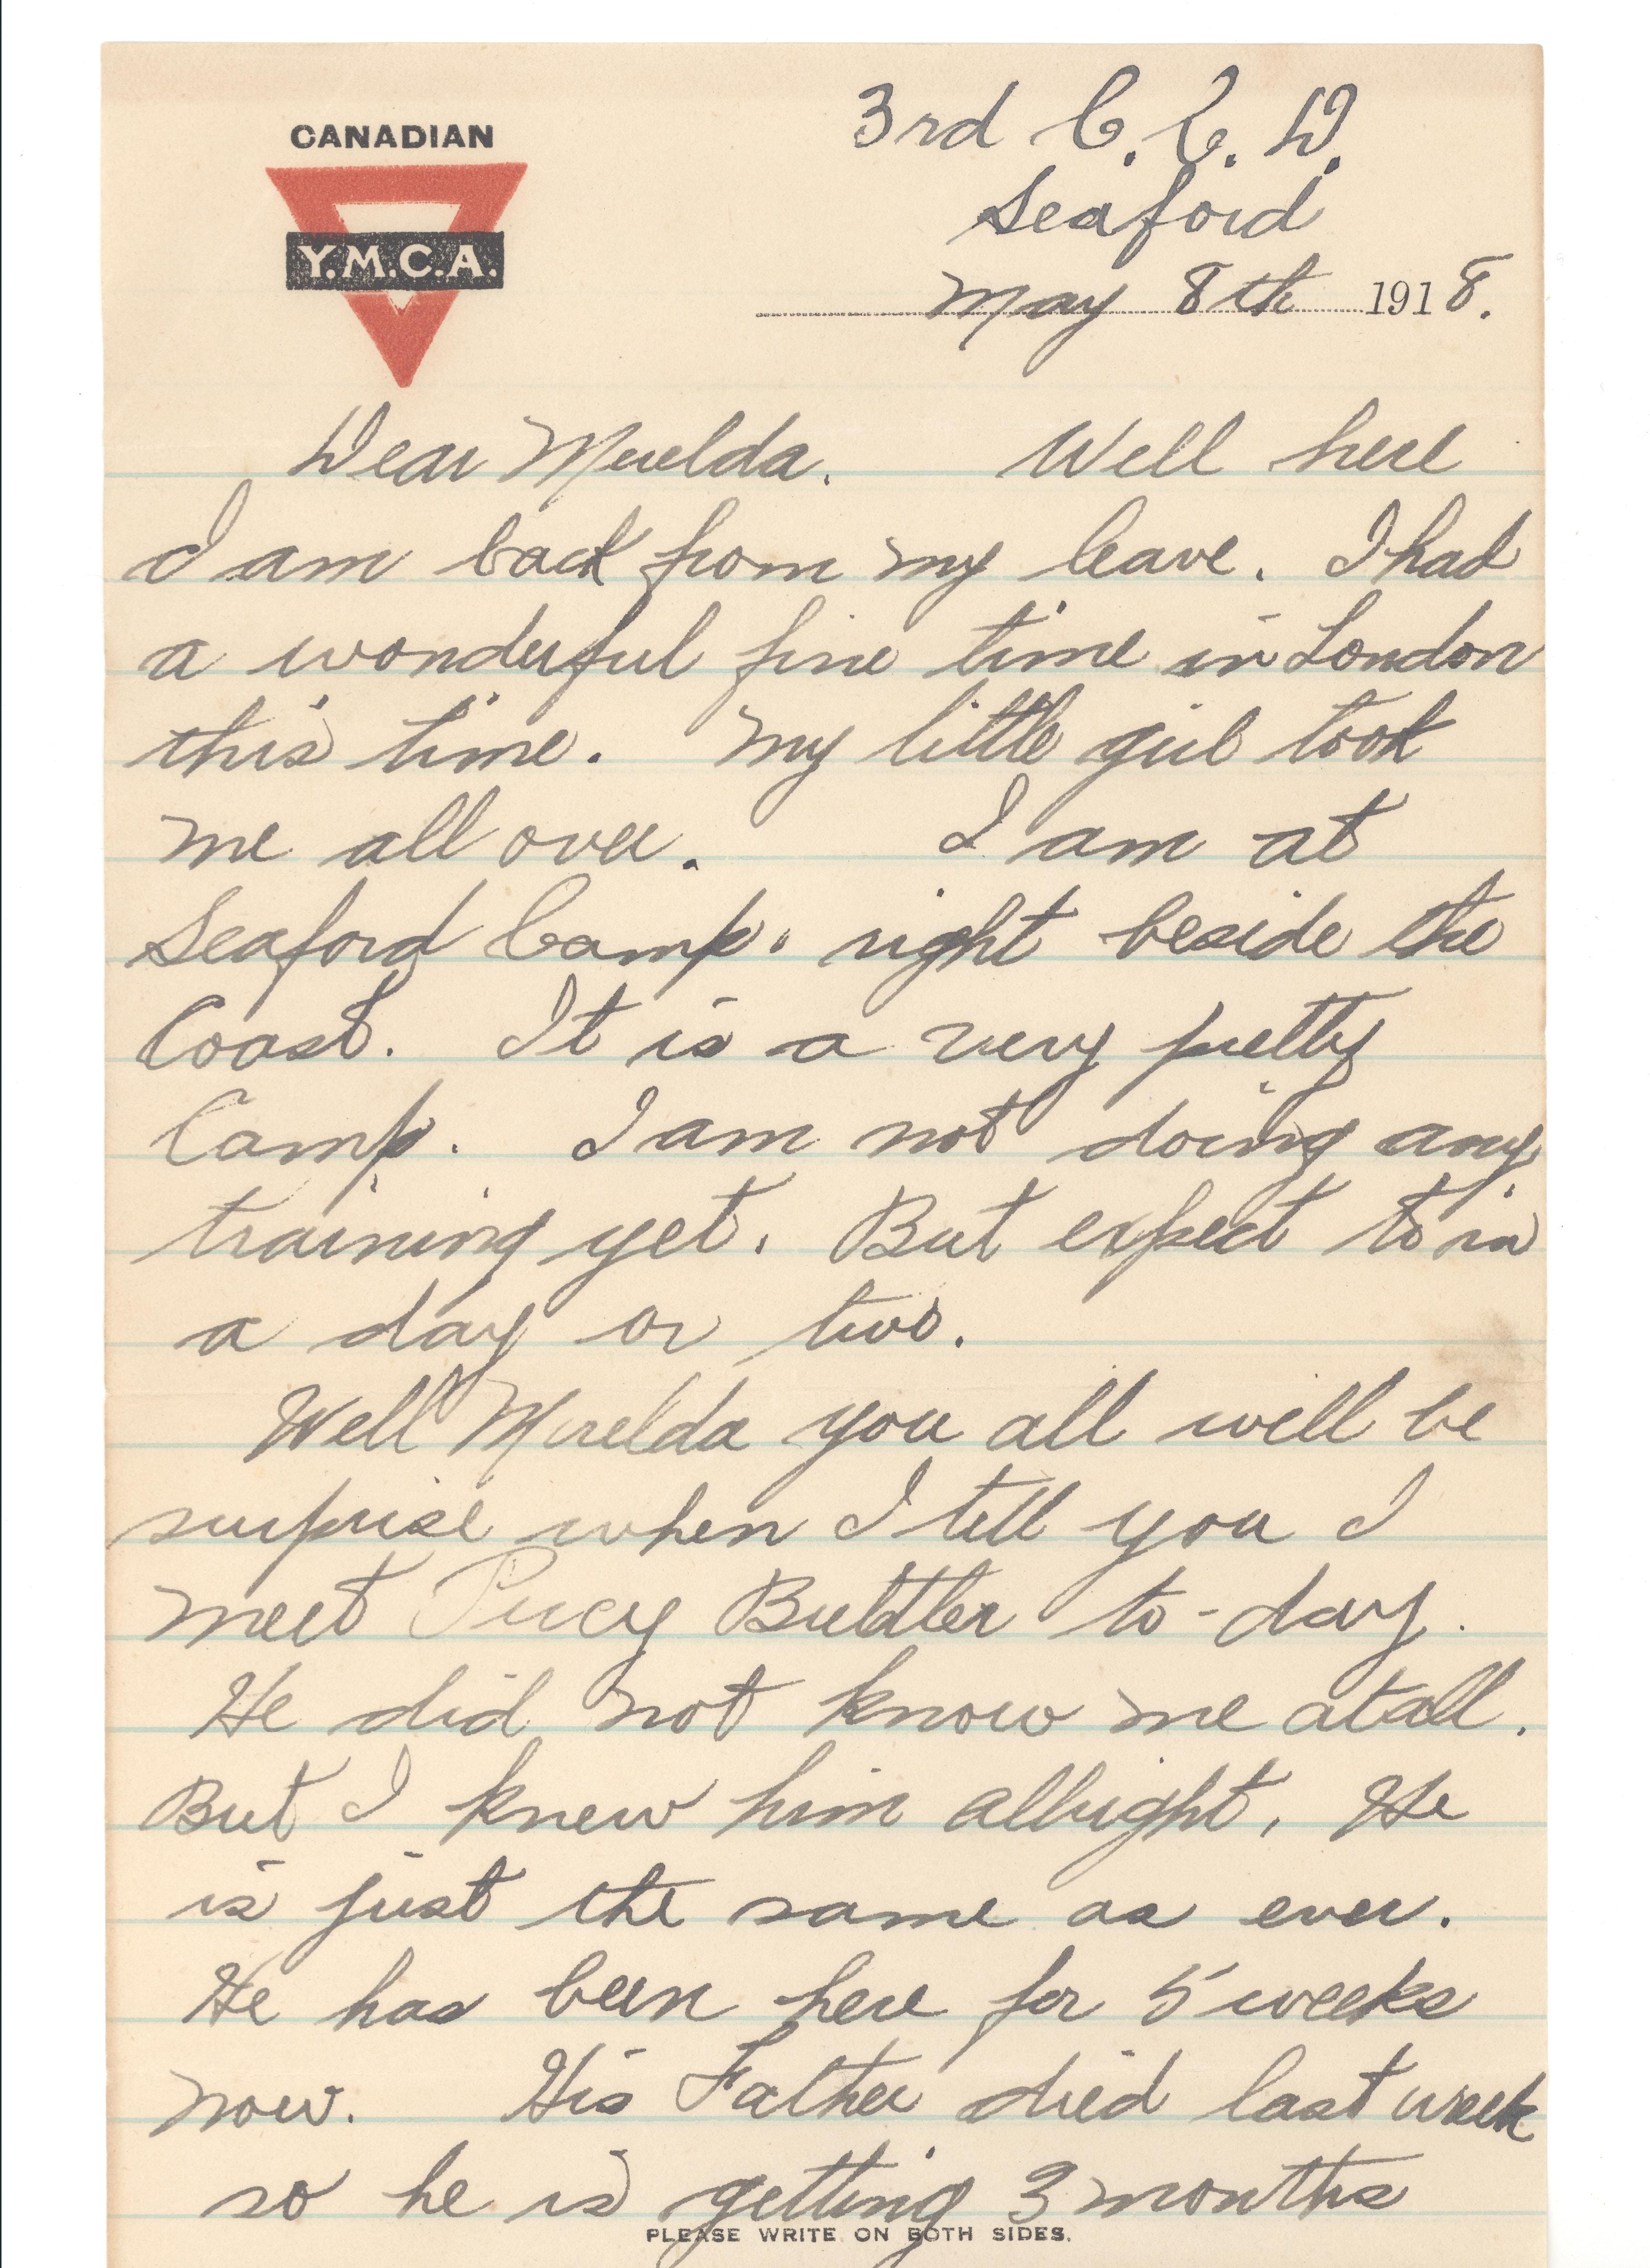 CANADIAN
Y.M.C.A.
3rd C.C.D.
Seaford
May 8th 1918.
Dear Murelda. Well here
I am back from my leave. I had
a wonderful fine time in London
this time. My little girl took
me all over. I am at
Seaford Camp. right beside the
Coast. It is a very pretty
Camp. I am not doing any
training yet. But expect to in
a day or two.
Well Murelda you all will be
surprise when I tell you I
meet Percy Buttler to-day.
He did not know me atall.
But I knew him allright. He
is just the same as ever.
He has been here for 5 weeks
now. His Father died last week
so he is getting 3 months
PLEASE WRITE ON BOTH SIDES.